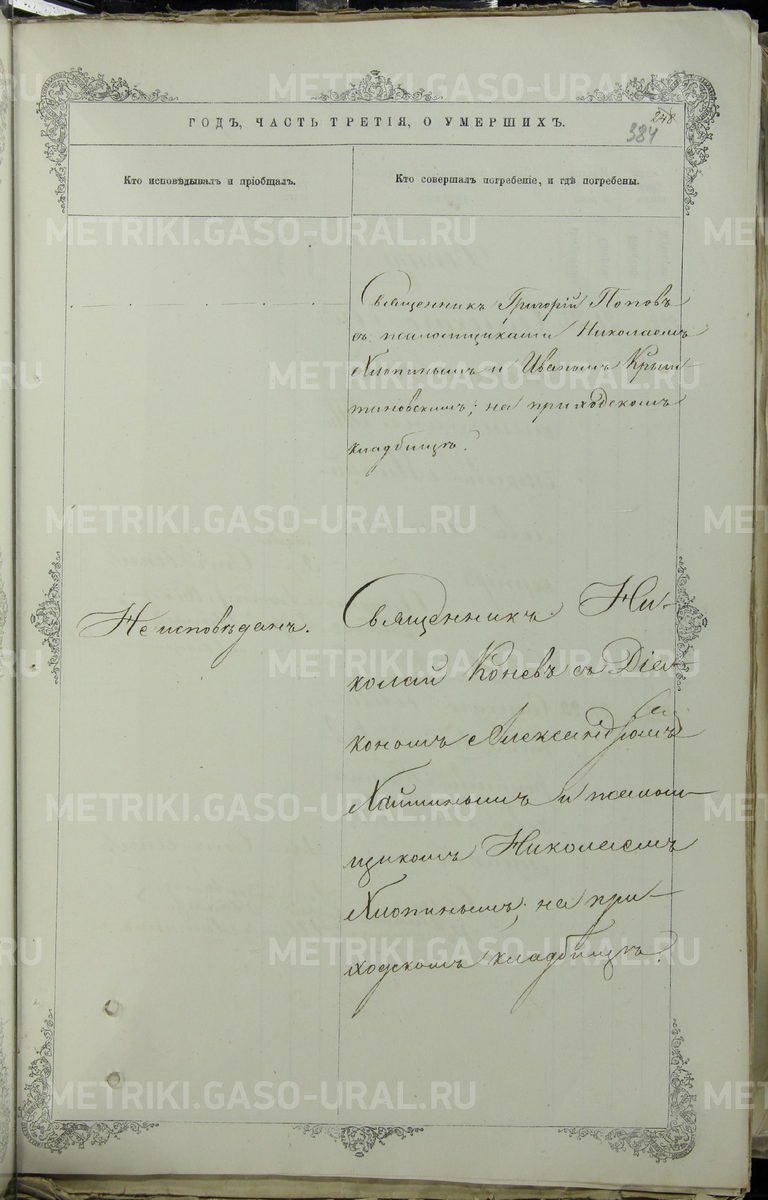 ГОДЪ, ЧАСТЬ ТРЕТІЯ, О УМЕРШИХЪ.
248
384
Кто исповѣдывалъ и пріобщалъ.
Кто совершалъ погребеніе, и гдѣ погребены.
Священникъ Григорій Поповъ
съ псаломщиками Николаемъ
Хлопинымъ и Иваномъ
на приходскомъ
кладбищѣ.
Не исповѣданъ.
Священникъ Ни-
колай Коневъ съ Діа-
кономъ Александромъ
и псалом-
щикомъ Николаемъ
Хлопинымъ; на при-
ходскомъ кладбищѣ.
METRIKI.GASO-URAL.RU